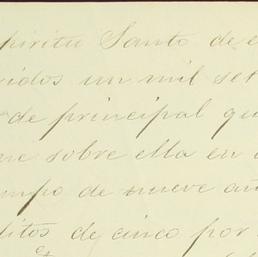 spiritu Santo de e
ridos un mil set
de principal qu
ue sobre ella en
mpo de nueve añ
ditos de cinco por